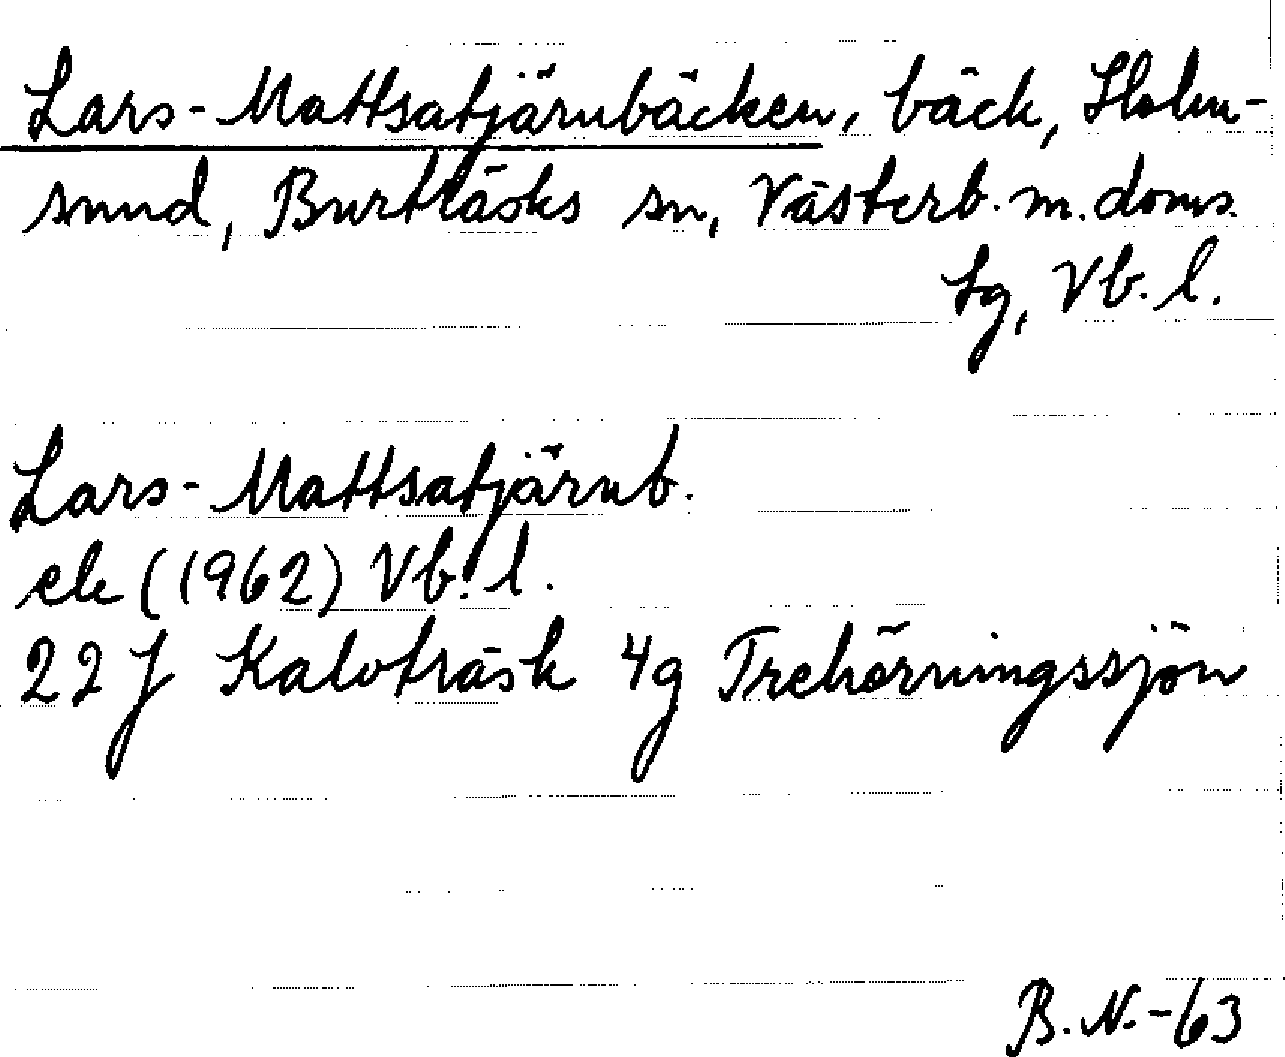 Lars-Mattsatjärnbäcken, bäck, Holm-
sund, Burträsks sn, Västerb. m. doms.
tg, Vb. l.
Lars-Mattsatjärnb.
ek (1962) Vb. l.
22J Kalvträsk 4g Trehörningssjön
B. N. -63